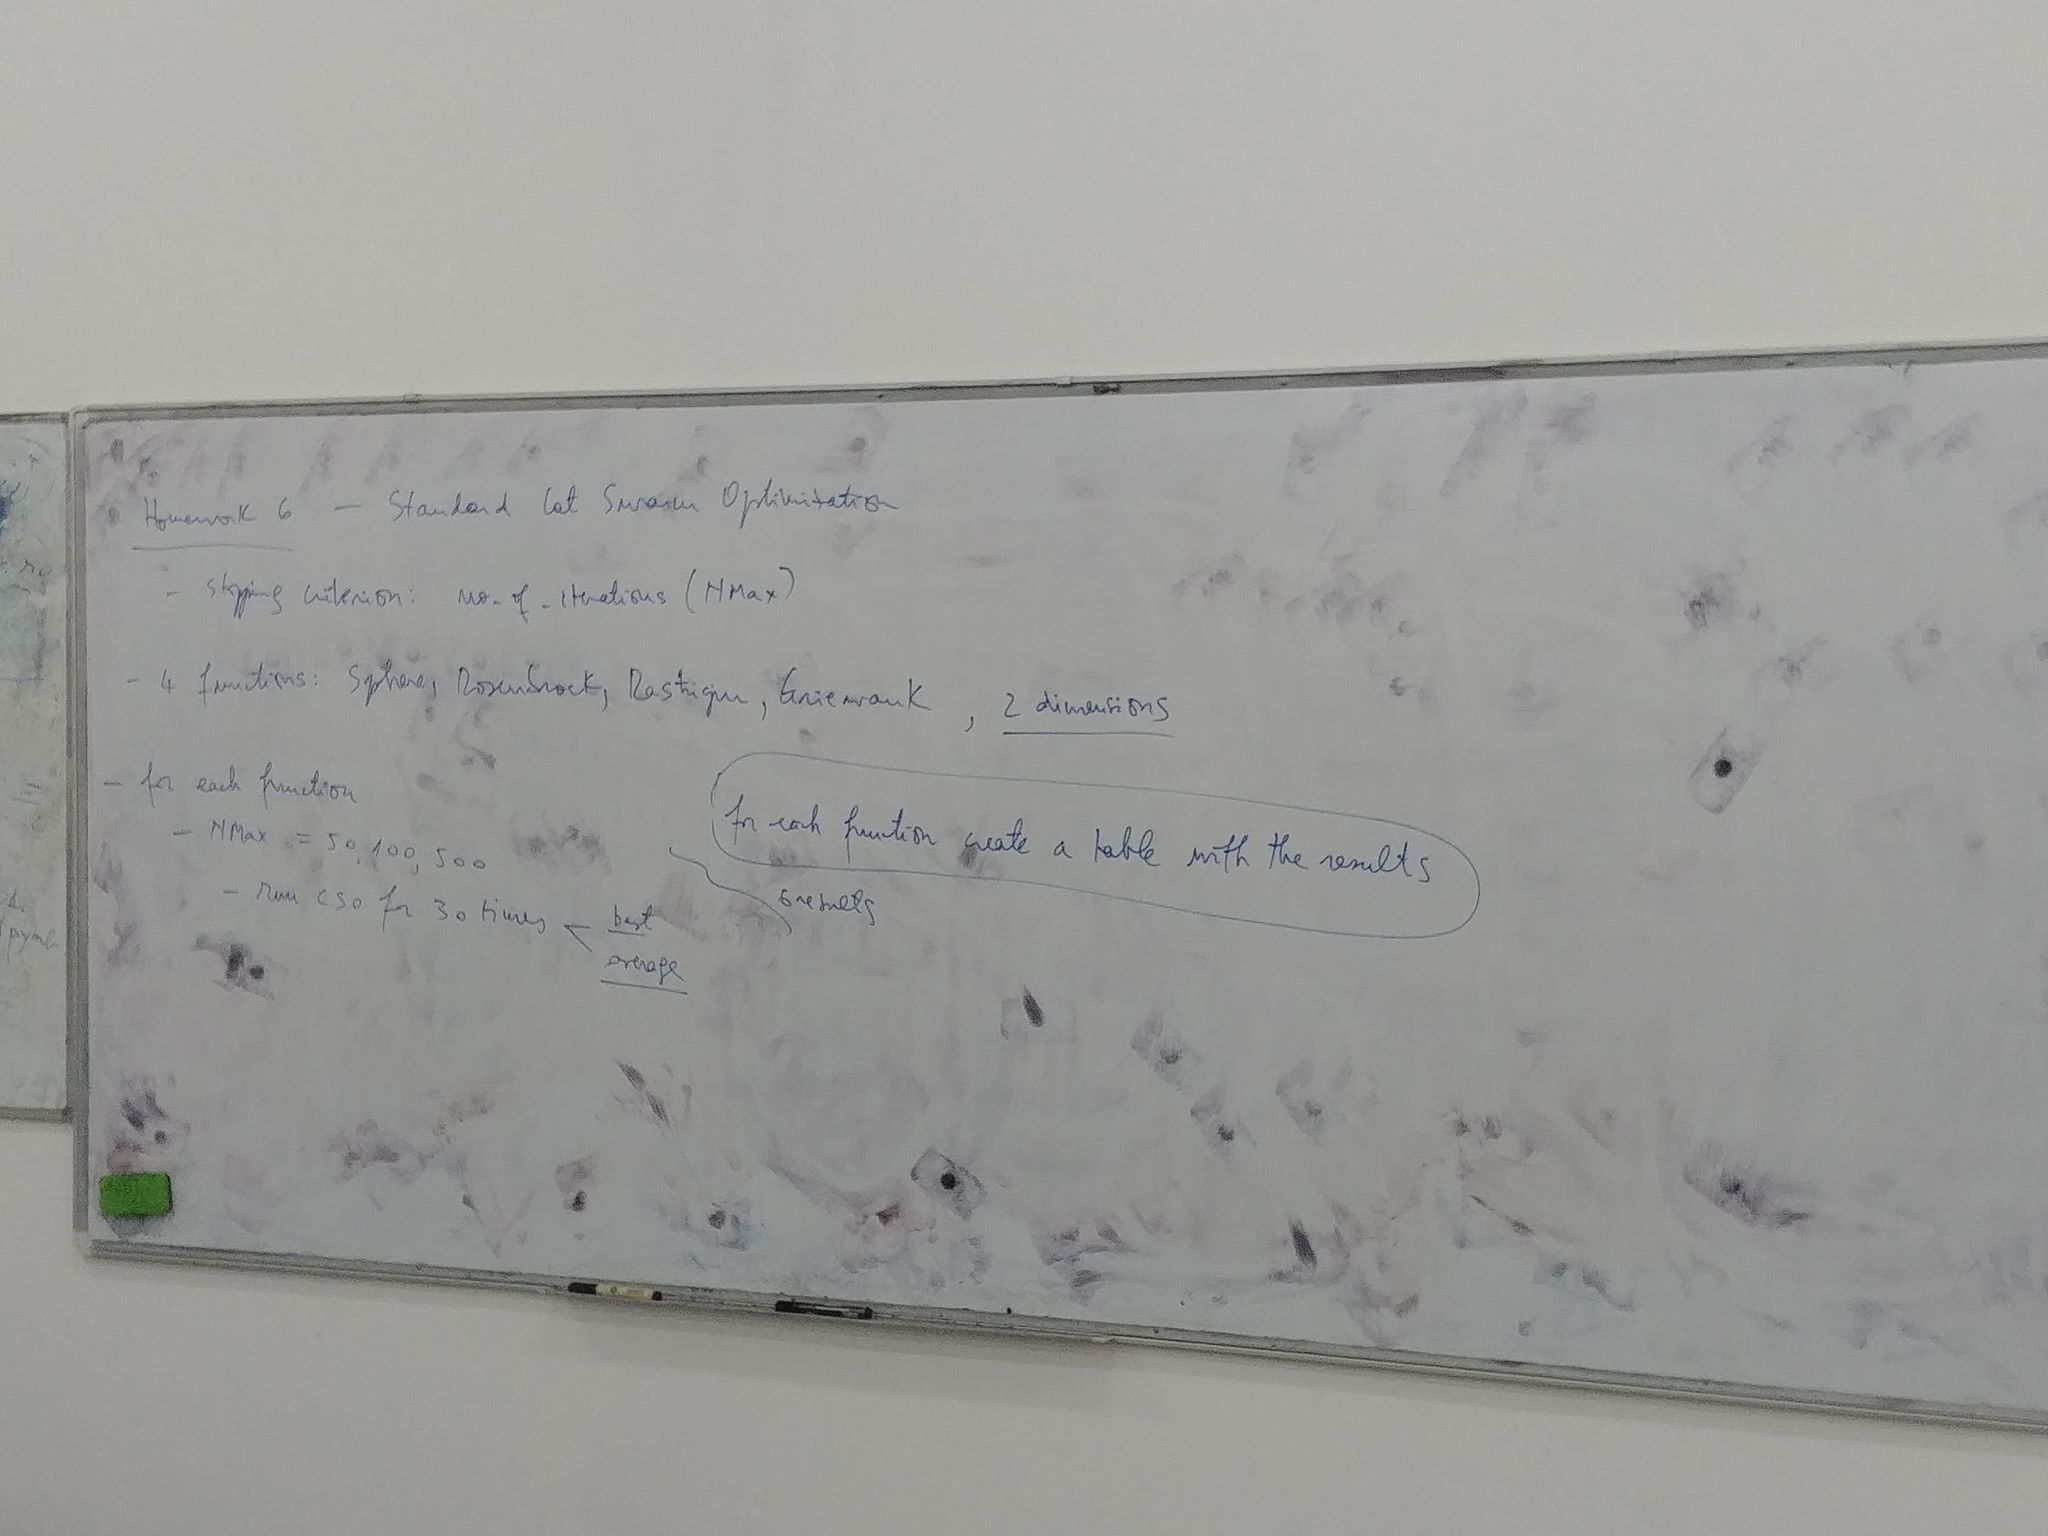 Homework 6 - Standard Cat Swarm Optimization
- stopping criterion: no_of_iterations (NMax)
- 4 functions: Sphere, Rosenbrock, Rastrigin, Griewank, 2 dimensions
- for each function
- NMax = 50, 100, 500
- run CSO for 30 times < best
average
6 results
for each function create a table with the results